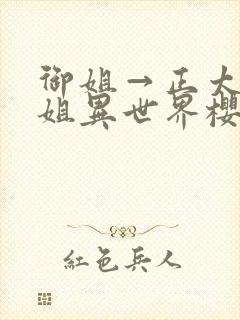 御姐→正大
姐異世界櫻
紅色兵人